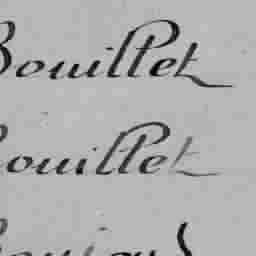 Bouillet
Bouillet